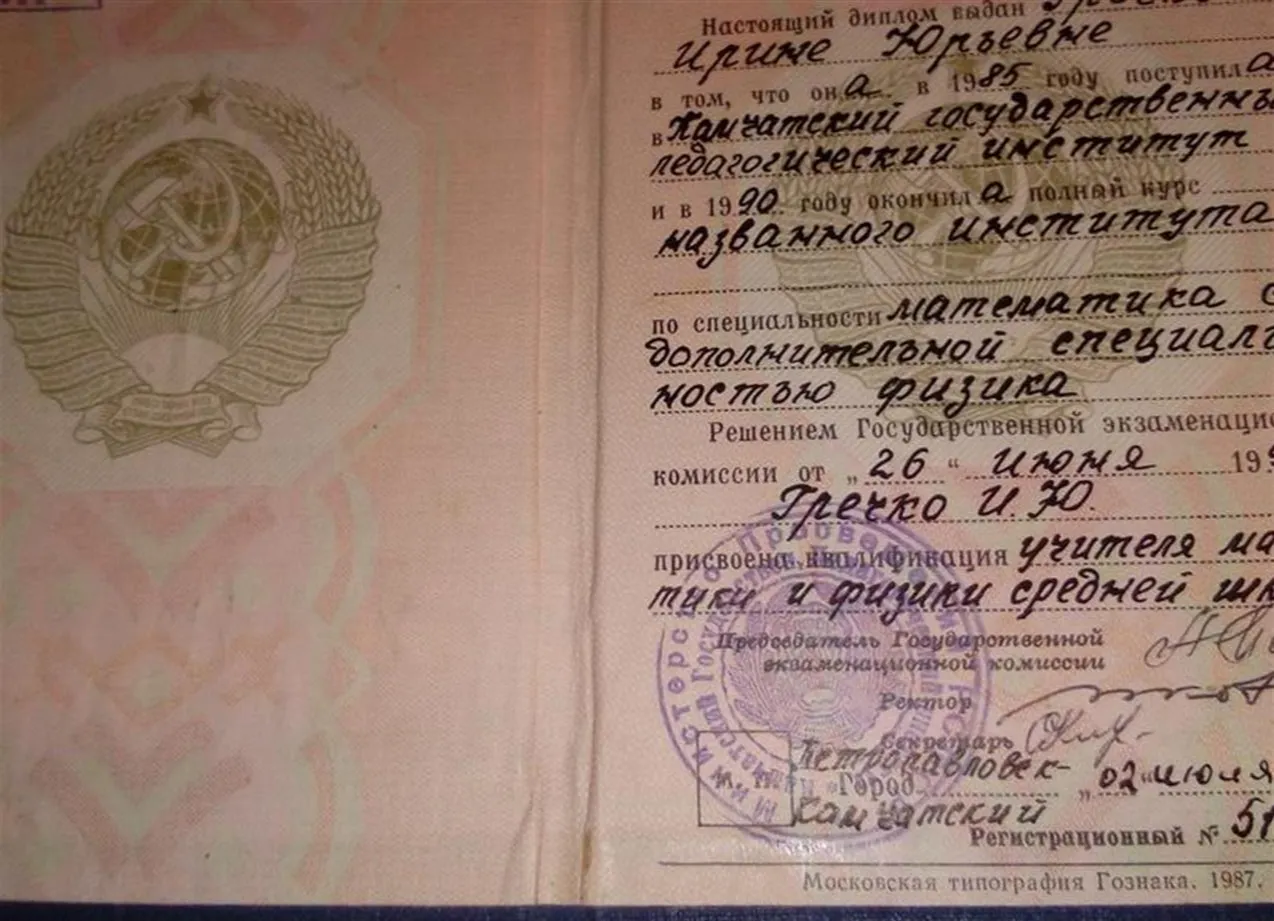 Настоящий диплом выдан
Ирине Юрьевне
в том, что она в 1985 году поступила
в Камчатский государственны
педагогический институт
и в 1990 году окончила полный курс
названного института
по специальности математика с
дополнительной специаль
ностью физика
Решением Государственной экзаменацио
комиссии от „26“ июня 19
Гречко И.Ю.
присвоена квалификация учителя ма
тики и физики средней шк
Председатель Государственной
экзаменационной комиссии
Ректор
Секретарь
Петропавловск-
Город „02“ июля
Камчатский
М. П.
Регистрационный № 51
Московская типография Гознака. 1987.